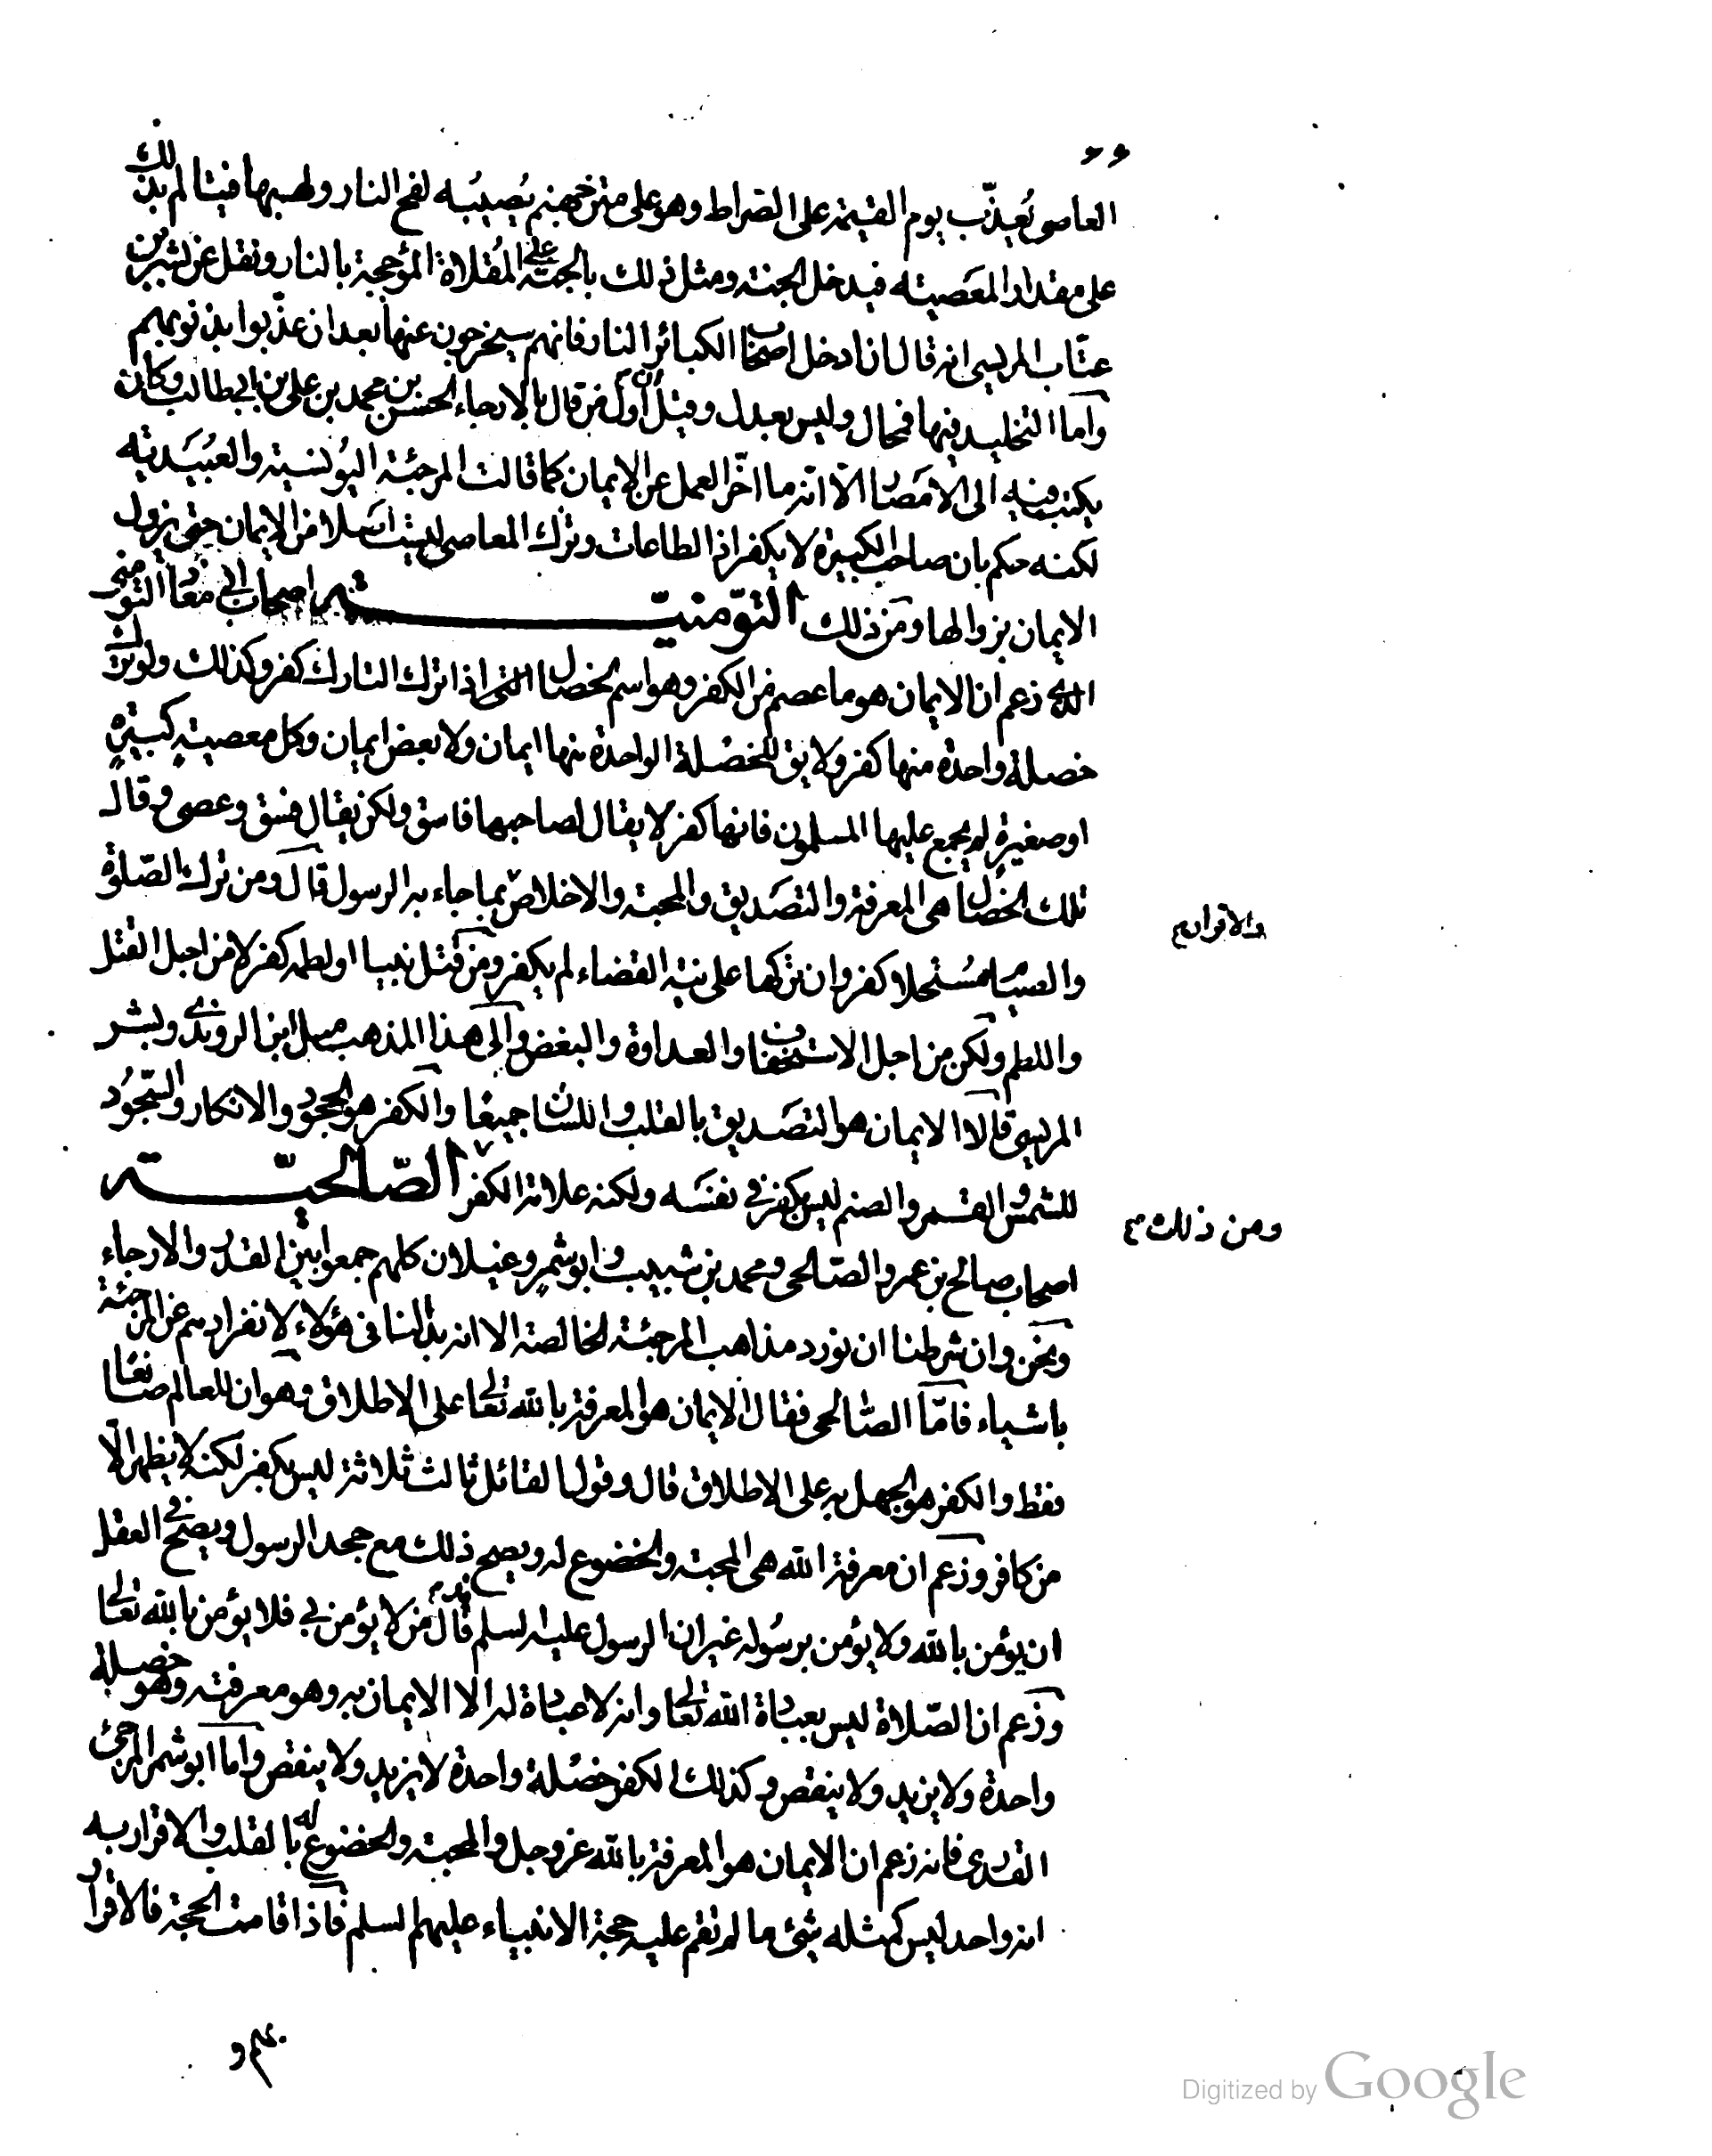 ٦٦
العاصى يُعذّب يوم القيمة على الصراط وهو على متن جهنم يُصيبُه لفح النار ولهبها فيتالم بذلك
على مقدار المعَصية فيدخل الجنة ومثل ذلك بالحبّة على المُقلاة المؤججة بالنار ونقل عن بشر بن
عتاب المريسى انه قال ان ادخل اصحاب الكبائر النار فانهم سيخرجون عنها بعد ان عذّبوا بذنوبهم
وأما التخليد فيها فمحال وليس بعدل وقيل ان اول من قال بالارجاء الحسن بن محمد بن على بن ابى طالب وكان
يكتب فيه الى الامصَار الا انه ما اخّر العمل عن الايمان كما قالت المرجئة اليُونسية والعُبيَدية
لكنه حكم بان صاحب الكبيرة لا يكفر اذ الطاعات وترك المعاصى ليست اصَلا من الايمان حتى يزول
الايمان بزوالها ومن ذلك التوّمنيّــــــة اصحاب ابى معُاذ التومنى
الذى زعم ان الايمان هو ما عصم من الكفر وهو اسم لخصال التى اذا ترك التارك كفر وكذلك ولو ترك
خصلة واحدة منها كفر ولا يق للخصُلة الواحدة منها ايمان ولا بعض ايمان وكل معصيةٍ كبيرةٍ
او صغيرةٍ لم يجمع عليها المسلمون فانها كفر لا يقال لصاحبها فاسق ولكن يقال فسق وعصى وقال
تلك الخصُال هى المعرفة والتصَديق والمحبة والاخلاص بما جاء به الرسول قال ومن ترك الصّلوة
والاقرار م
والصيَام مسُتحلا كفر وان تركها على نية القضاء لم يكفر ومن قتل نبيا او لطمه كفر لا من اجل القتل
واللطم ولكن من اجل الاستخفاف والعداوة والبغض والى هذا المذهب ميل ابن الروندى وبشر
المريسى قالا الايمان هو التصَديق بالقلب واللسان جميعُا والكفر هو الجحود والانكار والسّجُود
للشمس والقمر والصنم ليس بكفر فى نفسَه ولكنه علامة الكفر الصّالحيّــــــة
ومن ذلك م
اصحاب صالح بن عمرو الصّالحى ومحمد بن شبيب وابو شمرٍ وغيلان كلهم جمعوا بين القدر والارجاء
ونحن وان شرطنا ان نورد مذاهب المرجئة الخالصة الا انه بدا لنا فى هؤلاء لانفرادهم عن المرجئة
باشياء فامّا الصّالحى فقال الايمان هو المعرفة بالله تعالى على الاطلاق وهو ان للعالم صانعُا
فقط والكفر هو الجهل به على الاطلاق قال وقول القائل ثالث ثلاثة ليس بكفر لكنه لا يظهر الّا
من كافر وزعم ان معرفة الله هى المحبة والخضوع له ويصح ذلك مع جحد الرسول ويصح فى العقل
ان يؤمن بالله ولا يؤمن برسُوله غير ان الرسول عليه السلم قد قال من لا يؤمن بى فلا يؤمن بالله تعالى
وزعم ان الصّلاة ليس بعبادة الله تعالى وانه لا عبادة له الا الايمان به وهو معرفته وهو خصلة
واحدة ولا يزيد ولا ينقص وكذلك الكفر خصُلة واحدة لا يزيد ولا ينقص واما ابو شمر المرجئ
القدرى فانه زعم ان الايمان هو المعرفة بالله عز وجل والمحبة والخضوع له بالقلب والاقرار به
انه واحد ليس كمثله شئ ما لم تقم عليه حجة الانبياء عليهم السلم فاذا قامت الحجة فالاقرار
بهم و
Digitized by Google